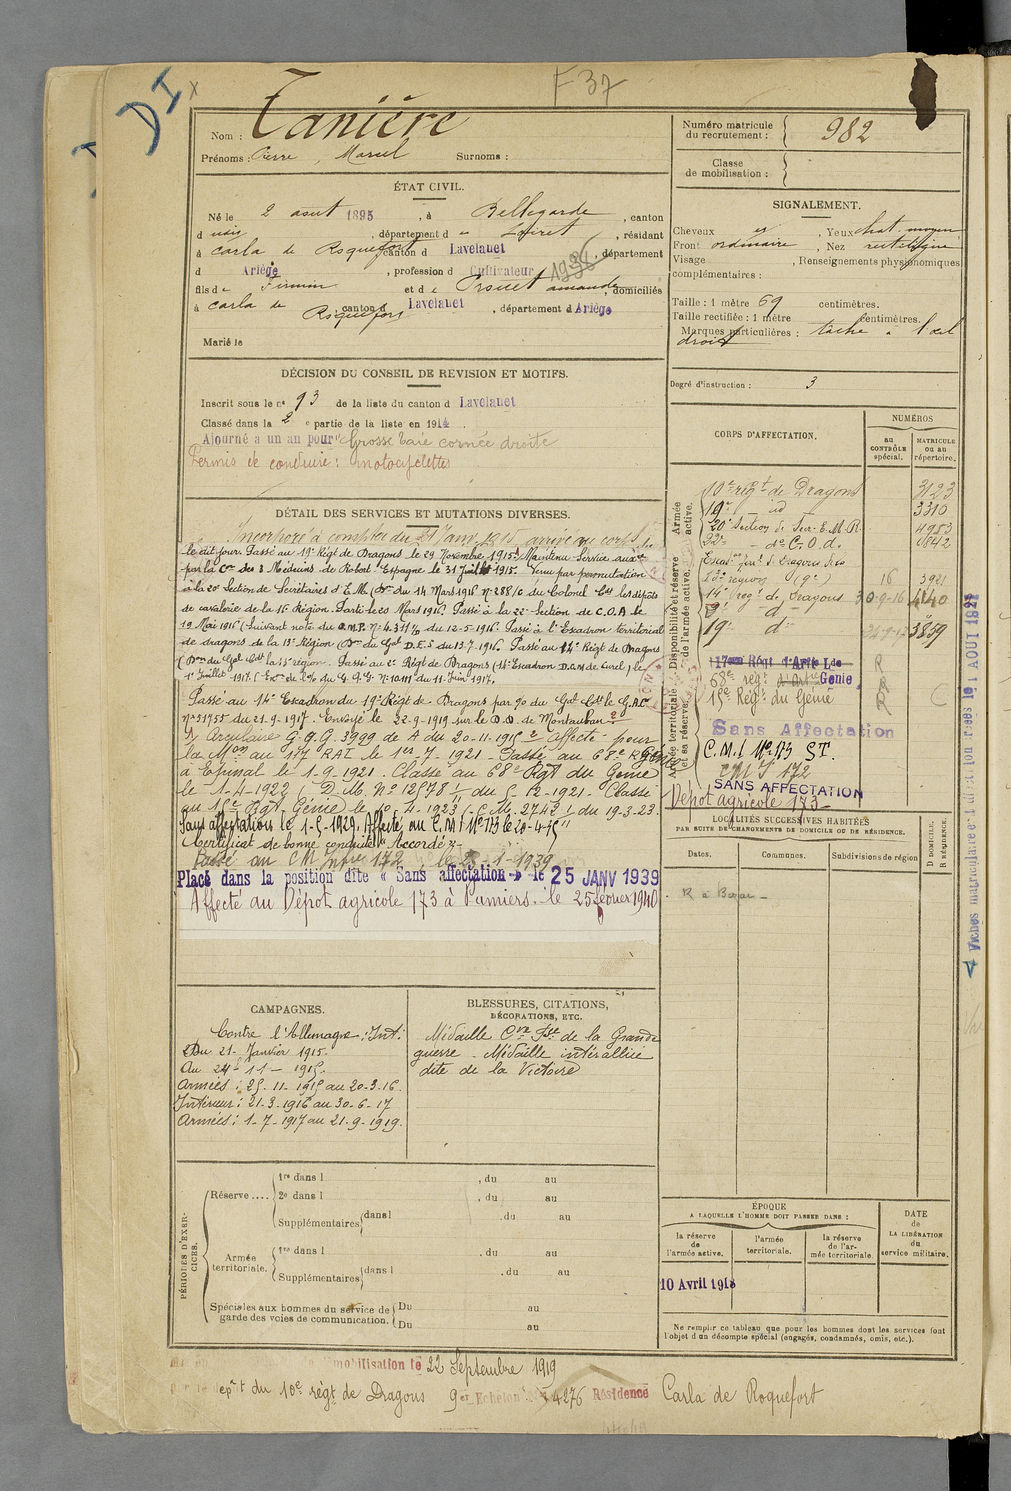 F 37
DI
x
Nom : Tanière
Prénoms : Pierre, Marcel Surnoms :
Numéro matricule du recrutement : 982
Classe de mobilisation :
ÉTAT CIVIL.
Né le 2 août 1895, à Bellegarde, canton
d udis, département d u Loiret, résidant
à Carla de Roquefort canton d Lavelanet, département
d Ariège, profession d Cultivateur 1938
fils de Firmin et de Prouet amande, domiciliés
à Carla de Roquefort canton d Lavelanet, département d Ariège
Marié le
SIGNALEMENT.
Cheveux Yeux chat. moyen
Front ordinaire, Nez rectiligne
Visage , Renseignements physionomiques
complémentaires :
Taille : 1 mètre 69 centimètres.
Taille rectifiée : 1 mètre centimètres.
Marques particulières : tache à l'œil
droit
Degré d'instruction : 3
DÉCISION DU CONSEIL DE REVISION ET MOTIFS.
Inscrit sous le n° 93 de la liste du canton d Lavelanet
Classé dans la 2e partie de la liste en 1914.
Ajourné a un an pour "Grosse taie cornée droite
Permis de conduire : motocyclettes
CORPS D'AFFECTATION.
NUMÉROS
au CONTRÔLE spécial.
MATRICULE ou au répertoire.
Armée active.
Disponibilité et réserve de l'armée active.
Armée territoriale et sa réserve.
10e régt de Dragons 3123
19e - id - 3310
20e Section de Secr. E.M.R. 4983
22e - do C.O.d.
16 3921
14e régt de Dragons 30-9-16 4440
2e - d -
19e d° 24-9-17 3859
17ème Régt d'Art Lde R
68e régt d'Art Génie R
15e Régt du Génie R
Sans Affectation
C.M.I N°173 ST.
CMI 172
SANS AFFECTATION
Dépôt agricole 173
DÉTAIL DES SERVICES ET MUTATIONS DIVERSES.
Incorporé à compter du 21 Janv 1915 arrivé au corps
le dit jour. Passé au 19e Régt de Dragons le 29 Novembre 1915. Maintenu Service aux.re
par la Con des 3 Médecins de Robert-Espagne le 31 Juillet 1915. Venu par permutation
à la 20e Section de Secrétaires d'E.M. (Don du 14 Mars 1916 N° 288/c du Colonel Cdt les dépôts
de cavalerie de la 16e Région. Parti le 20 Mars 1916. Passé à la 22e Section de C.O.A. le
19 Mai 1916 (Suivant note du G.M.P. N° 4.311 1/0 du 12-5-1916. Passé à l'Escadron territorial
de dragons de la 13e Région (Don du Gal D.E.S du 13.7.1916. Passé au 14e Régt de Dragons
(Don du Gal Cdt la 13e région. Passé au 2e Régt de Dragons (14e Escadron D.A.M de Gurel) le
1er Juillet 1917. (Exon de l'o/ du G.Q.G. N° 10.111 du 11 Juin 1917.
Passé au 14e Escadron du 19e Régt de Dragons par %o du Gal Cdt le G.A.C
N° 31755 du 21-9-1917. Envoyé le 22-9-1919 sur le D.D. de Montauban
Circulaire G.Q.G. 3999 de A du 20-11-1915 Affecté pour
la Mon au 117 RAL le 1er 7-1921 - Passé au 68e R Génie
à Epinal le 1-9-1921. Classé au 68e Rgt du Génie
le 1-4-1922 (D.M. N° 12578 1/11 du 5-12-1921 - Classé
au 15e Rgt Génie le 10-4-1923 (C.M. 2742 1/11 du 19-3-23.
Sans affectation le 1-5-1929. Affecté au C.M.I N°173 le 20-4-35
Certificat de bonne conduite "Accordé"
Passé au CM Infie 172 le 23-1-1939
Placé dans la position dite « Sans affectation » le 25 JANV 1939
Affecté au Dépôt agricole 173 à Pamiers. le 25 février 1940
LOCALITÉS SUCCESSIVES HABITÉES
PAR SUITE DE CHANGEMENTS DE DOMICILE OU DE RÉSIDENCE.
Dates. Communes. Subdivisions de région D DOMICILE. R RÉSIDENCE.
Fiches matriculaire et direction créées le 1 AOUT 1929
CAMPAGNES.
Contre l'Allemagne : Int:
Du 21 - Janvier 1915.
Au 24 - 11 - 1915.
Armées : 25-11-1915 au 20-3-16.
Intérieur : 21-3-1916 au 30-6-17
Armées : 1-7-1917 au 21-9-1919.
BLESSURES, CITATIONS,
DÉCORATIONS, ETC.
Médaille Cve Fse de la Grande
guerre - Médaille intéralliée
dite de la Victoire
PÉRIODES D'EXERCICES.
Réserve .... 1re dans l , du au
2e dans l , du au
Supplémentaires dans l , du au
Armée territoriale. 1re dans l , du au
Supplémentaires dans l , du au
Spéciales aux hommes du service de garde des voies de communication. Du au
Du au
ÉPOQUE
A LAQUELLE L'HOMME DOIT PASSER DANS :
la réserve de l'armée active.
l'armée territoriale.
la réserve de l'armée territoriale.
DATE de LA LIBÉRATION du service militaire.
10 Avril 1918
Ne remplir ce tableau que pour les hommes dont les services font
l'objet d'un décompte spécial (engagés, condamnés, omis, etc.).
mobilisation le 22 Septembre 1919
par le dépôt du 10e régt de Dragons 9e Echelon N° 4276 Résidence Carla de Roquefort